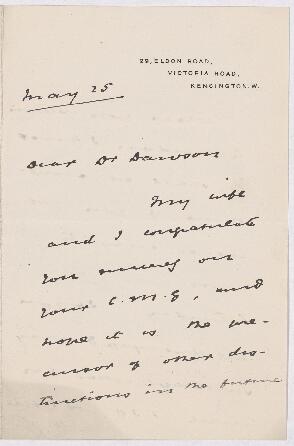 29, ELDON ROAD,
VICTORIA ROAD,
KENSINGTON. W.
May 25
Dear Dr Dawson
My wife
and I congratulate
you sincerely on
your C.M.G, and
hope it is the pre-
cursor of other dis-
tinctions in the future